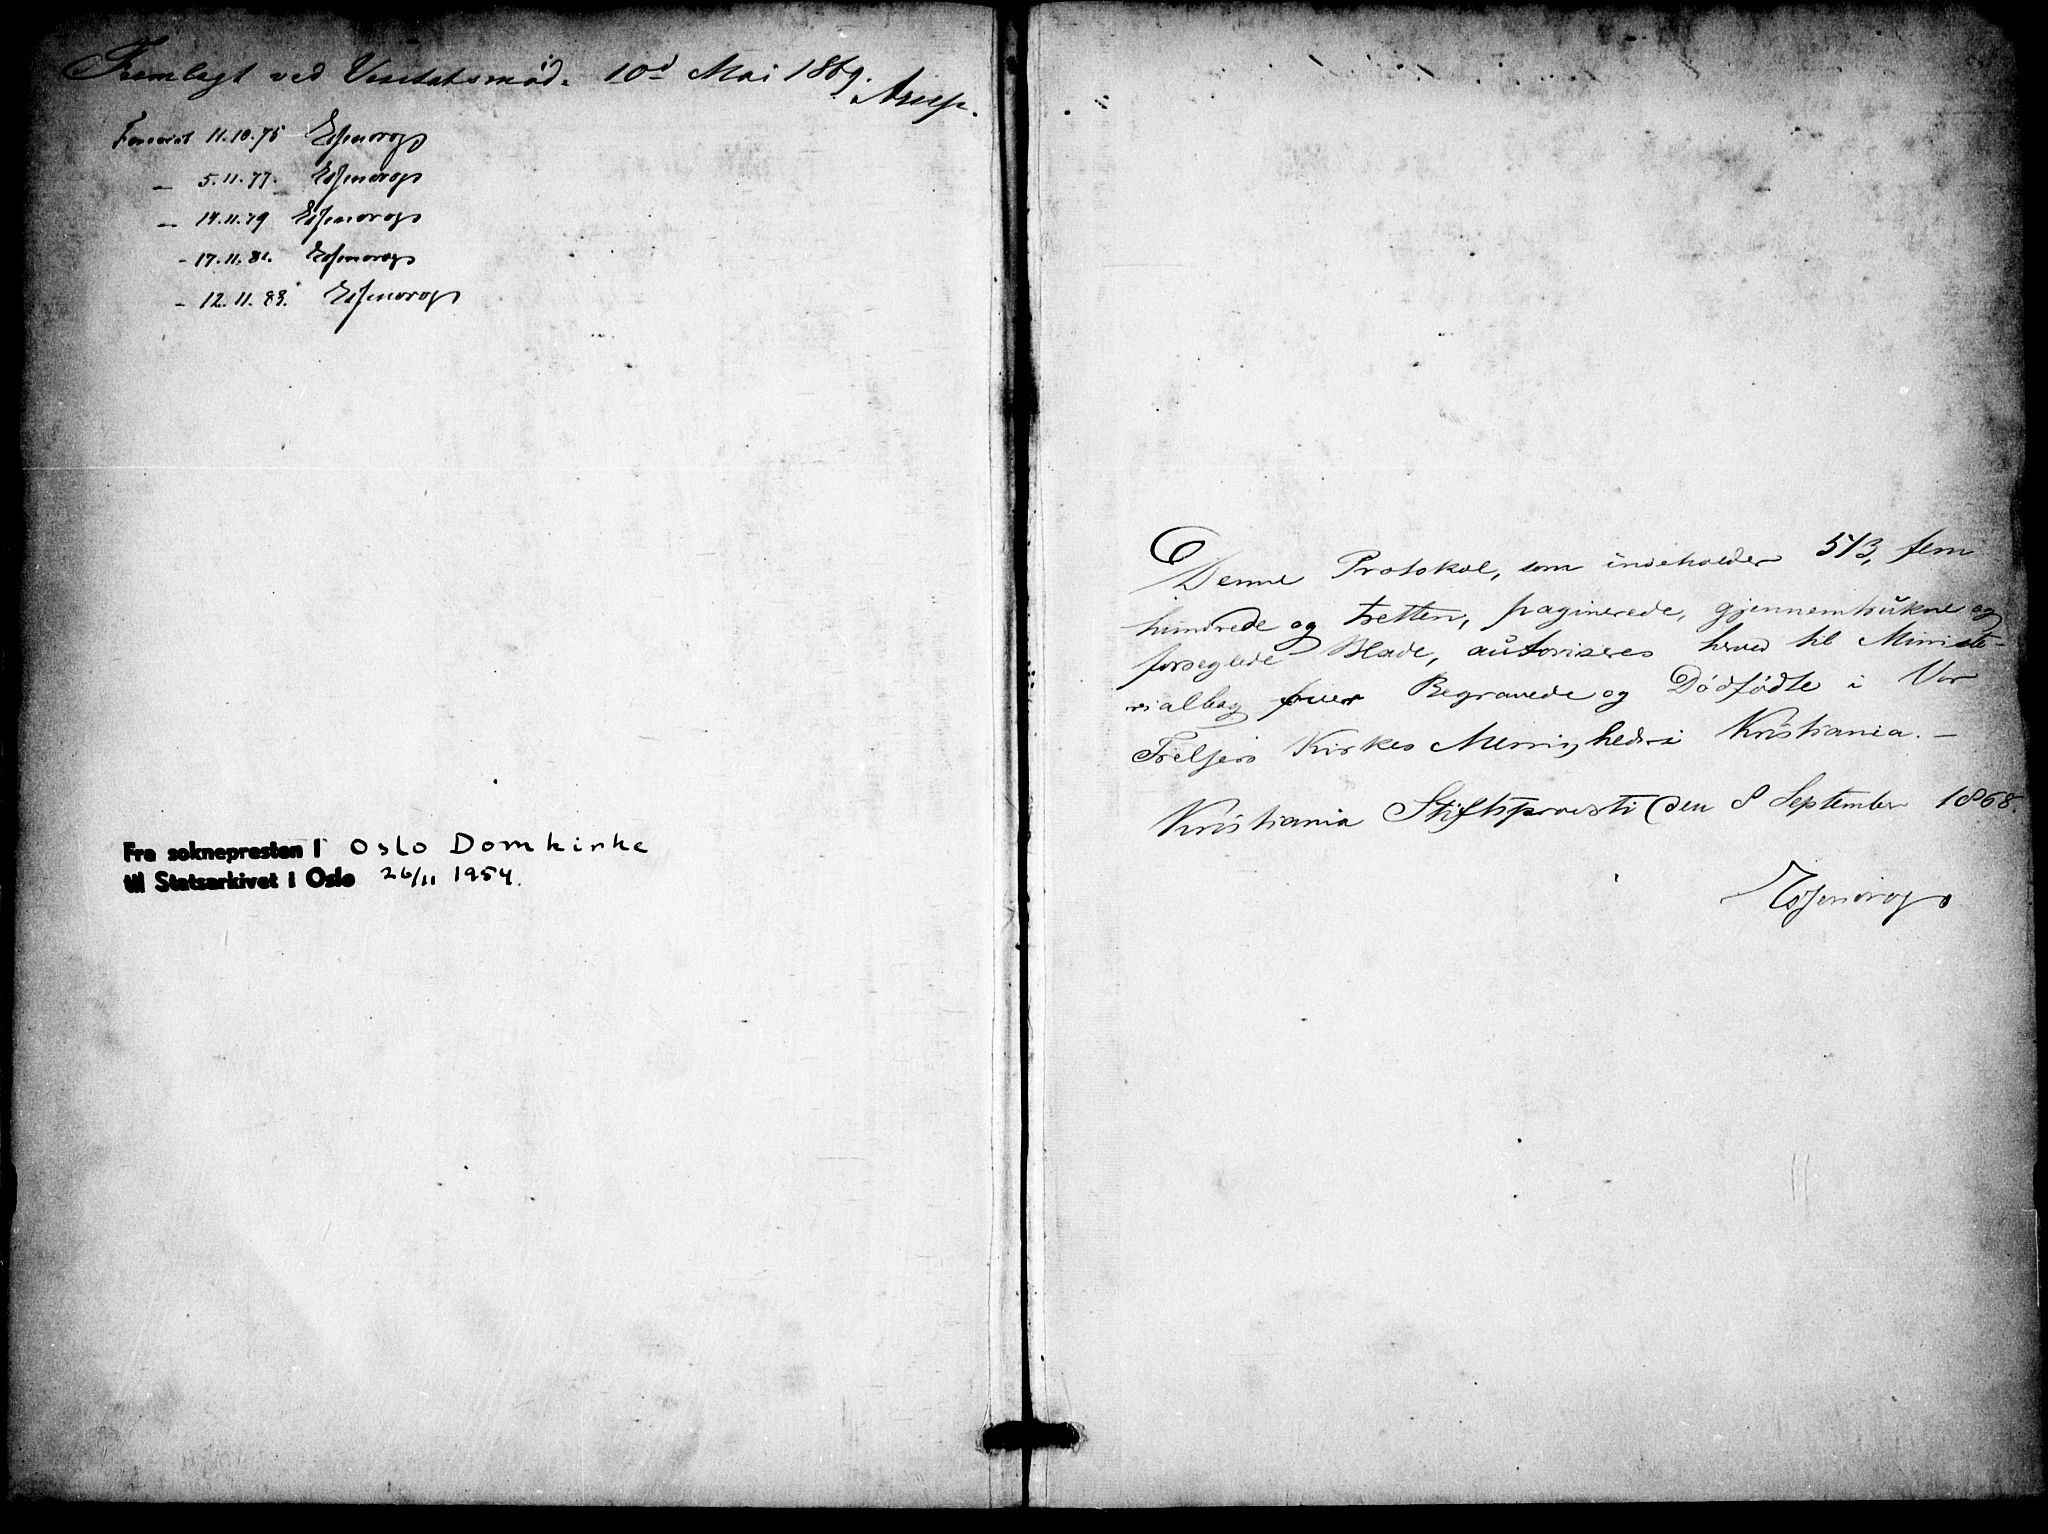 Fremlagt ved Visitatsmöd. 10d Mai 1869.
Arup.
Foreviist 11.10.75 Essendrop
– 5.11.77. Essendrop
– 14.11.79 Essendrop
– 17.11.81. Essendrop
– 12.11.83. Essendrop
Fra soknepresten i Oslo Domkirke
til Statsarkivet i Oslo 26/11 1954.
Denne Protokol, som indeholder 513, fem
hundrede og tretten, paginerede, gjennemtrukne og
forseglede Blade, autoriseres herved til Ministe-
rialbog over Begravede og Dødfødte i Vor
Frelsers Kirkes Menighed i Kristiania. –
Kristiania Stiftsprovsti den 8 September 1868.
Essendrop